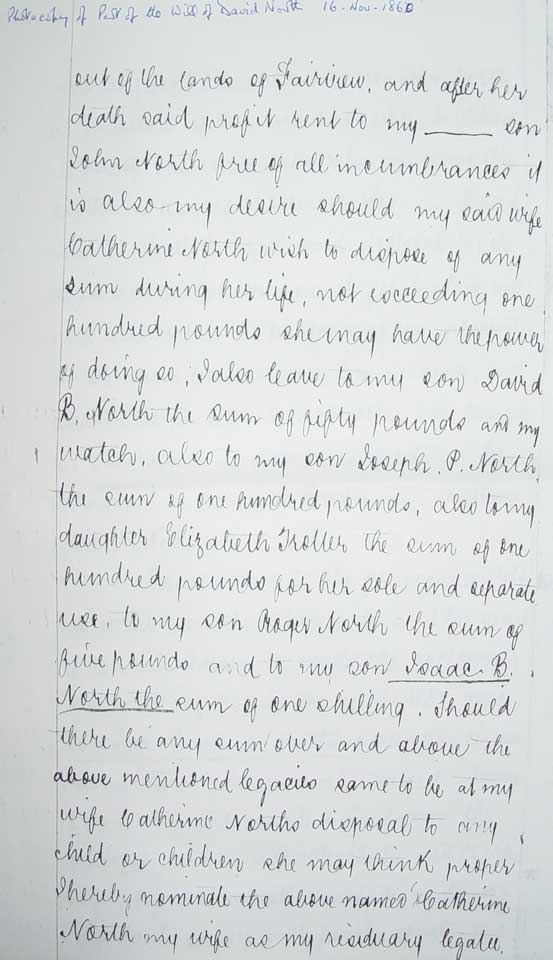 Photocopy of Part of the Will of David North 16-Nov-1860
out of the lands of Fairview, and after her
death said profit rent to my ______ son
John North free of all incumbrances it
is also my desire should my said wife
Catherine North wish to dispose of any
sum during her life, not exceeding one
hundred pounds she may have the power
of doing so, I also leave to my son David
B. North the sum of fifty pounds and my
watch, also to my son Joseph. P. North,
the sum of one hundred pounds, also to my
daughter Elizabeth Troller the sum of one
hundred pounds for her sole and separate
use, to my son Roger North the sum of
five pounds and to my son Isaac B.
North the sum of one shilling. Should
there be any sum over and above the
above mentioned legacies same to be at my
wife Catherine Norths disposal to any
child or children she may think proper
I hereby nominate the above named Catherine
North my wife as my residuary legatee.